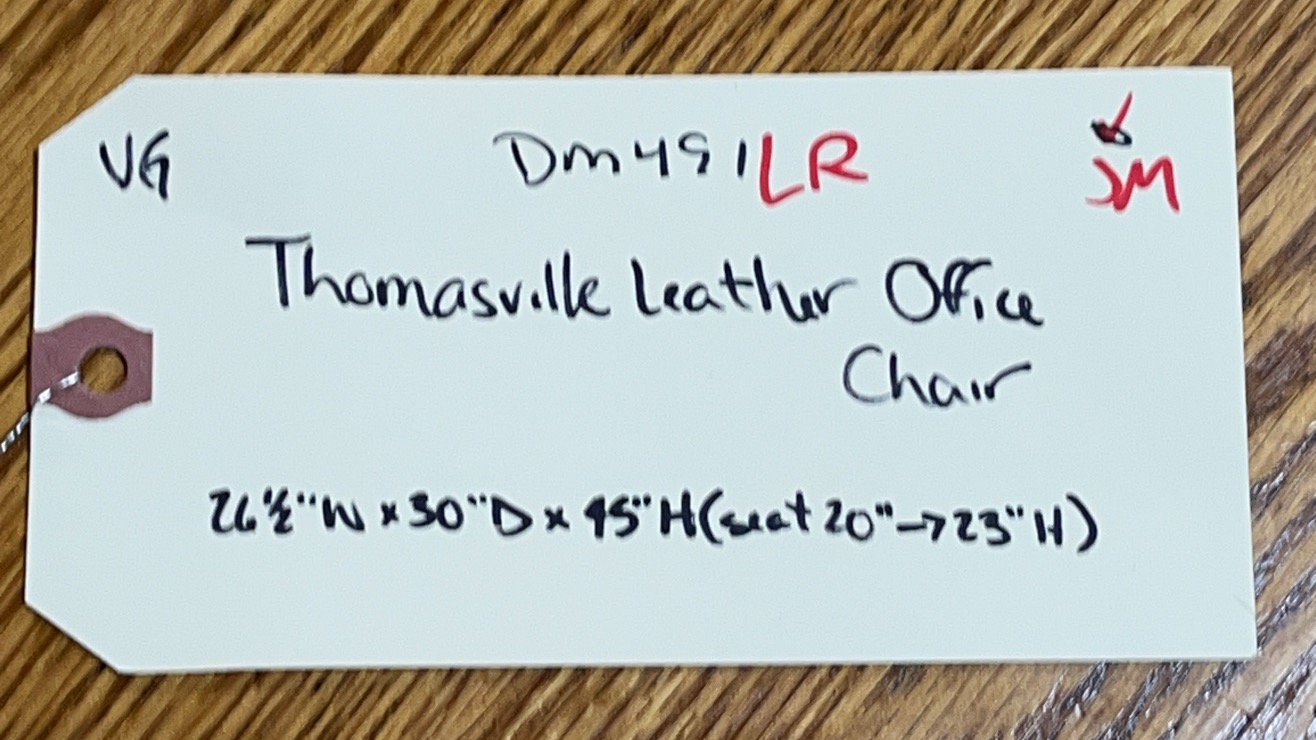 VG Dm491LR JM
Thomasville Leather Office
Chair
26½"W x 30"D x 45"H (seat 20"→23"H)